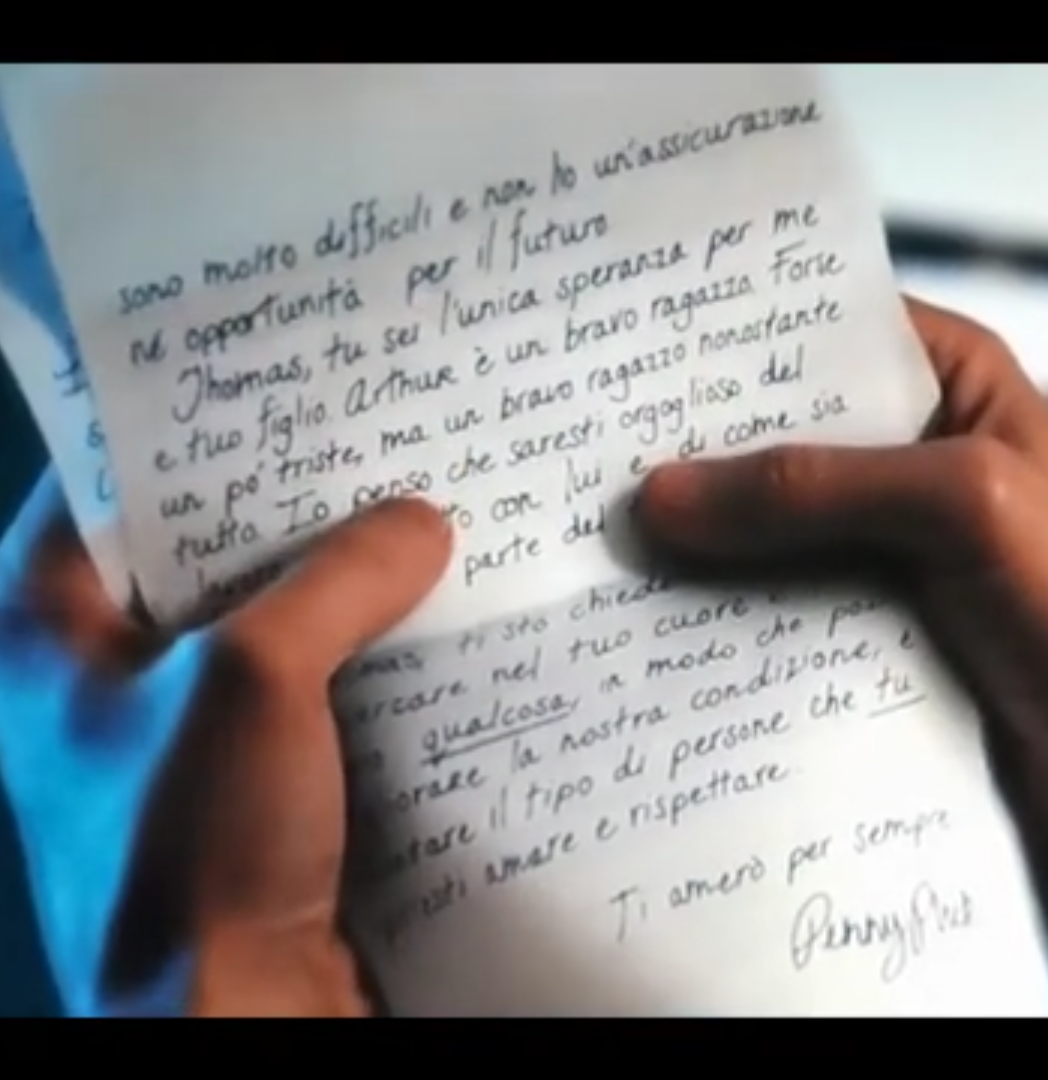 sono molto difficili e non ho un'assicurazione
né opportunità per il futuro
Thomas, tu sei l'unica speranza per me
e tuo figlio. Arthur è un bravo ragazzo Forse
un pó triste, ma un bravo ragazzo nonostante
tutto. Io penso che saresti orgoglioso del
con lui e di come sia
parte del
ti sto
nel tuo cuore
qualcosa, in modo che
la nostra condizione, e
il tipo di persone che tu
amare e rispettare.
Ti amerò per sempre
Penny